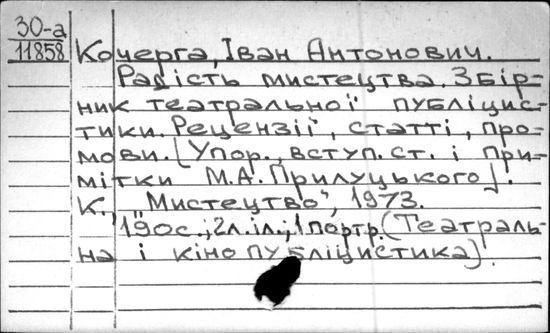 30-а
11858
Кочерга, Іван Антонович.
Радість мистецтва. Збір-
ник театральної публіцис-
тики. Рецензії, статті, про-
мови. [Упор., вступ. ст. і при-
мітки М.А. Прилуцького].
К., "Мистецтво", 1973.
190с.; 2л.іл.; 1 портр. (Театраль-
на і кіно публіцистика).